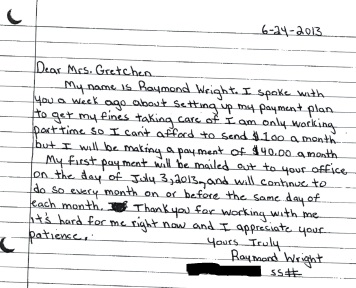 6-24-2013
Dear Mrs. Gretchen
My name is Raymond Wright. I spoke with
you a week ago about setting up my payment plan
to get my fines taking care of I am only working
part time so I can't afford to send $100 a month
but I will be making a payment of $40.00 a month
My first payment will be mailed out to your office
on the day of July 3, 2013, and will continue to
do so every month on or before the same day of
each month. Thank you for working with me
it's hard for me right now and I appreciate your
patience.
Yours Truly
Raymond Wright
SS#